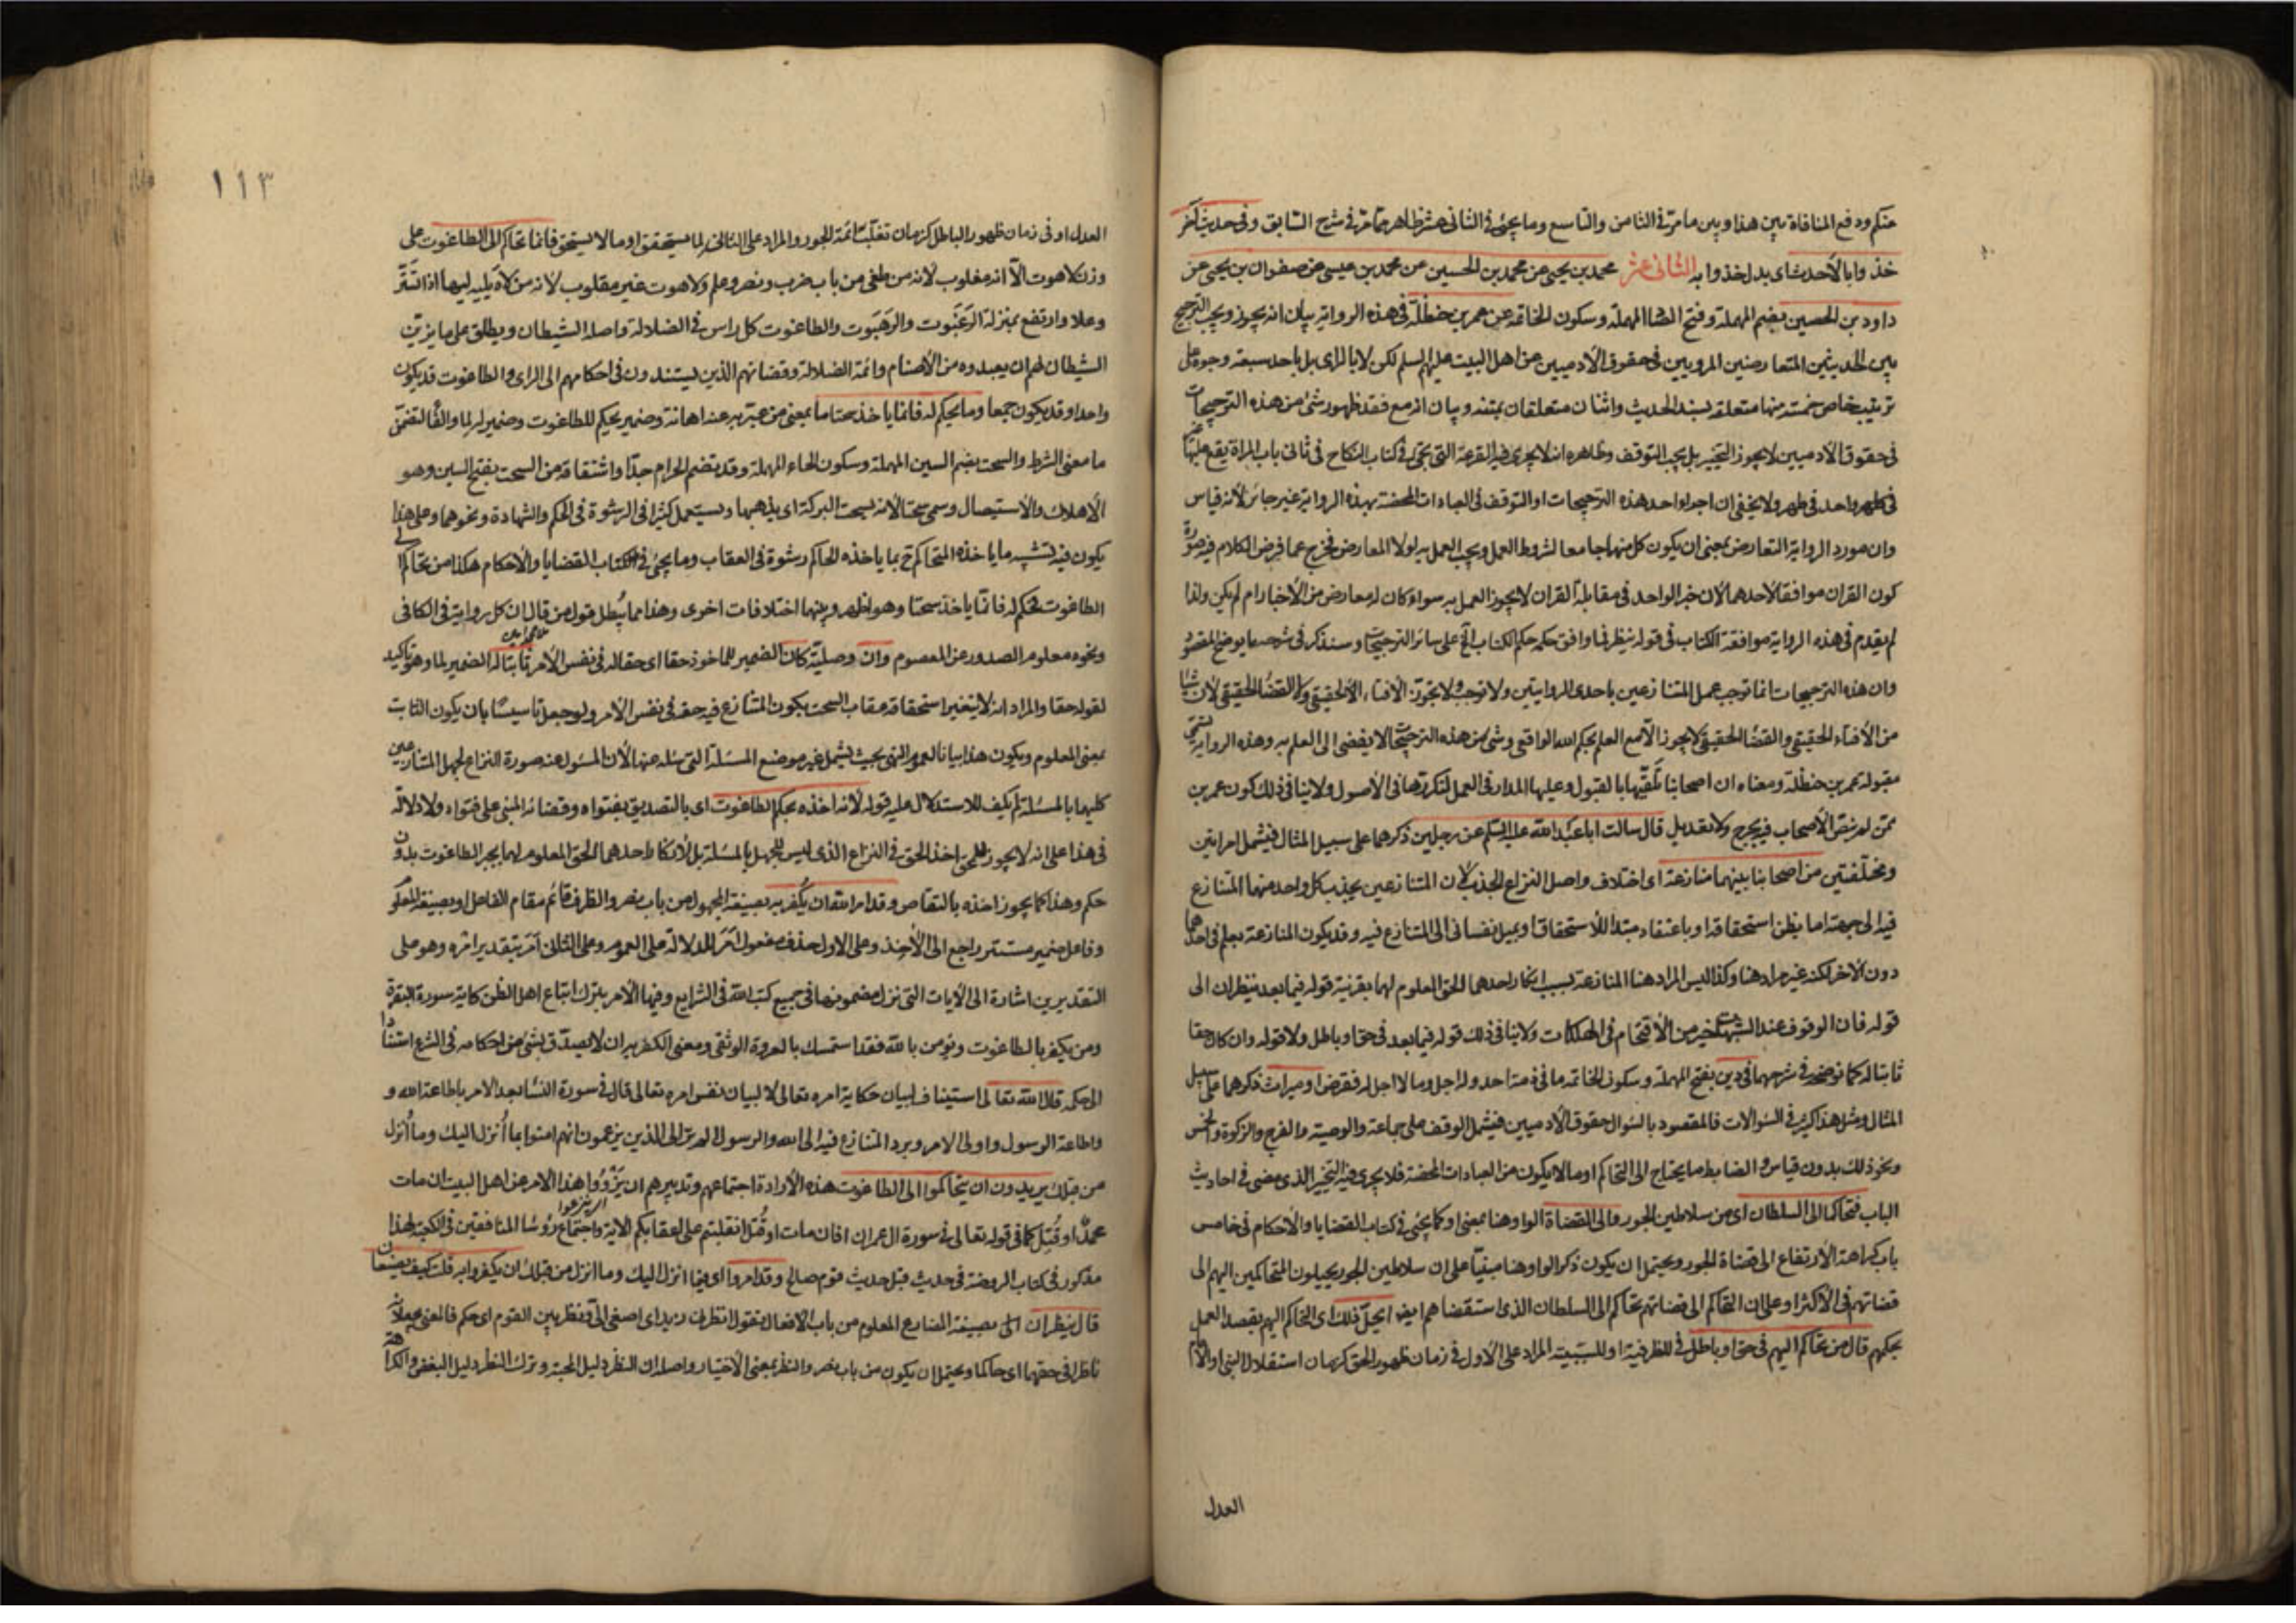 منكم ودفع المنافاة بين هذا وبين ما مر في الثامن والتاسع وما يجئ في الثاني عشر ظاهر مما مر في شرح السابق وفي حديث آخر
خذوا بالأحدث اي بدل خذوا به الثاني عشر محمد بن يحيى عن محمد بن الحسين عن محمد بن عيسى عن صفوان بن يحيى عن
داود بن الحصين بضم المهملة وفتح المهملة وسكون الخاتمة عن عمر بن حنظلة في هذه الرواية بيان انه يجوز ويجب الترجيح
بين الحديثين المتعارضين المرويين في حقوق الآدميين عن اهل البيت عليهم السلم لكن لا بالراى بل باحد سبعة وجوه على
ترتيب خاص خمسة منها متعلقة بسند الحديث واثنان متعلقان بمتنه وبيان انه مع فقد ظهور شئ من هذه الترجيحات
في حقوق الآدميين لا يجوز التخيير بل يجب التوقف وظاهره انه لا يجرى فيه القرعة التي تجئ في كتاب النكاح في ثاني باب المراة يقع عليها
في طهر واحد ولا يخفى ان اجراء احد هذه الترجيحات او التوقف في العبادات المحضة بهذه الرواية غير جائز لأنه قياس
وان مورد الرواية التعارض بمعنى ان يكون كل منهما جامعا لشروط العمل ويجب العمل به لولا المعارض فخرج عما فرض الكلام فيه صورة
كون القران موافقا لأحدهما لأن خبر الواحد في مقابلة القران لا يجوز العمل به سواء كان له معارض من الأخبار ام لم يكن ولذا
لم يقدم في هذه الرواية موافقة الكتاب في قوله ينظر فما وافق حكمه حكم الكتاب الخ على سائر الترجيحات وسنذكر في شرحه ما يوضح المقصود
وان هذه الترجيحات انما توجب عمل المتنازعين باحدى الروايتين ولا توجب ولا تجوز الافتاء الحقيقي ولا القضاء الحقيقي لأن شيئا
من الأفتاء الحقيقي والقضاء الحقيقي لا يجوز الا مع العلم بحكم الله الواقعي وشئ من هذه الترجيحات لا يفضى الى العلم به وهذه الرواية تسمى
مقبولة عمر بن حنظلة ومعناه ان اصحابنا تلقيها بالقبول وعليها المدار في العمل لتكررها في الأصول ولا ينافي ذلك كون عمر بن
ممن لم ينص الأصحاب فيه بجرح ولا تعديل قال سالت ابا عبد الله عليه السلم عن رجلين ذكرهما على سبيل المثال فيشمل امراتين
ومختلفتين من اصحابنا بينهما منازعة اى اختلاف واصل النزاع الجذب لأن المتنازعين يجذب كل واحد منهما المتنازع
فيه الى جهته اما بظن استحقاقه او باعتقاد مبتدأ للاستحقاق او بميل نفساني الى المتنازع فيه وقد يكون المنازعة بعلم في احدهما
دون الآخر لكنه غير مراد هنا وكذا ليس المراد هنا المنازعة بسبب انكار احدهما الحق المعلوم لهما بقرينة قوله فيما بعد ينظران الى
قوله فان الوقوف عند الشبهات خير من الأقتحام في الهلكات ولا ينافي ذلك قوله فيما بعد في حق او باطل ولا قوله وان كان حقا
ثابتا له كما نوضحه في شرحهما في دين بفتح المهملة وسكون الخاتمة ما في ذمة احد وله اجل وما لا اجل له فقرض او ميراث ذكرهما على سبيل
المثال ومثل هذا كثير في السؤالات فالمقصود بالسؤال حقوق الآدميين فيشمل الوقف على جماعة والوصية والفرج والزكوة والخمس
ونحو ذلك بدون قياس والضابط ما يحتاج الى التحاكم او ما لا يكون من العبادات المحضة فلا يجرى فيه التخيير الذى مضى في احاديث
الباب فتحاكما الى السلطان اى من سلاطين الجور والى القضاة الواو هنا بمعنى او كما يجئ في كتاب القضايا والأحكام في خامس
باب كراهة الأرتفاع الى قضاة الجور ويحتمل ان يكون ذكر الواو هنا مبنيا على ان سلاطين الجور يحيلون المتحاكمين اليهم الى
قضاتهم في الأكثر او على ان التحاكم الى قضاتهم تحاكم الى السلطان الذى استقضاهم ايضا ايحل ذلك اى التحاكم اليهم بقصد العمل
بحكمهم قال من تحاكم اليهم في حق او باطل في للظرفية او للسببية المراد على الأول في زمان ظهور الحق كزمان استقلال النبي او الأمام
العدل
١١٣
العدل او في زمان ظهور الباطل كزمان تغلب ائمة الجور والمراد على الثاني لما يستحقه او ما لا يستحق فانما تحاكم الى الطاغوت على
وزن لاهوت الا انه مقلوب لانه من طغى من باب ضرب ونصر وعلم ولاهوت غير مقلوب لانه من لاه يليه ليها اذا تستر
وعلا وارتفع بمنزلة الرغبوت والرهبوت والطاغوت كل راس في الضلالة واصله الشيطان ويطلق على ما يزين
الشيطان لهم ان يعبدوه من الأصنام وائمة الضلالة وقضاتهم الذين يستندون في احكامهم الى الراى والطاغوت قد يكون
واحدا وقد يكون جمعا وما يحكم له فانما ياخذ سحتا ما بمعنى من عبر به عنه اهانة وضمير يحكم للطاغوت وضمير له لما والفا لتضمن
ما معنى الشرط والسحت بضم السين المهملة وسكون الحاء المهملة وقد يضم الحرام جدا واشتقاقه من السحت بفتح السين وهو
الأهلاك والأستيصال وسمى سحتا لأنه يسحت البركة اى يذهبها ويستعمل كثيرا في الرشوة في الحكم والشهادة ونحوهما وعلى هذا
يكون فيه تشبيه ما ياخذه المتحاكم ح بما ياخذه الحاكم رشوة في العقاب وما يجئ في كتاب القضايا والأحكام هكذا من تحاكم الى
الطاغوت فحكم له فانما ياخذ سحتا وهو اظهر وبينهما اختلافات اخرى وهذا مما يبطل قول من قال ان كل رواية في الكافي
ونحوه معلوم الصدور عن المعصوم وان وصلية كان الضمير للماخوذ حقا اى حقا له في نفس الأمر ثابتا له الضمير لما وهو تاكيد
لقوله حقا والمراد انه لا يتغير استحقاقه عقاب السحت بكون المتنازع فيه حقه في نفس الأمر ولو جعل تاسيسا بان يكون الثابت
بمعنى المعلوم ويكون هذا بيانا لعموم النهى بحيث يشمل غير موضع المسئلة التي سئله عنها لأن المسئول عنه صورة النزاع لجهل المتنازعين
كليهما بالمسئلة لم يكف للاستدلال عليه قوله لأنه اخذه بحكم الطاغوت اى بالتصديق بفتواه وقضائه المبنى على فتواه ولا دلالة
في هذا على انه لا يجوز للمحق اخذ الحق في النزاع الذى ليس للجهل بالمسئلة بل لأنكار احدهما الحق المعلوم لهما بجبر الطاغوت بدون
حكم وهذا كما يجوز اخذه بالتقاص وقد امر الله ان يكفر به بصيغة المجهول من باب نصر والظرف قائم مقام الفاعل او بصيغة المعلوم
وفاعله ضمير مستتر راجع الى الأخذ وعلى الاول حذف مفعول امر للدلالة على العموم وعلى الثاني امر بتقدير امره وهو على
التقديرين اشارة الى الآيات التي نزل مضمونها في جميع كتب الله في الشرايع وفيها الأمر بترك اتباع اهل الظن كاية سورة البقرة
ومن يكفر بالطاغوت ويؤمن بالله فقد استمسك بالعروة الوثقى ومعنى الكفر به ان لا يصدق بشئ من احكامه في الشرع استنادا
الى حكمه قال الله تعالى استيناف لبيان حكاية امره تعالى لا لبيان نفس امره تعالى قال في سورة النساء بعد الامر باطاعة الله و
واطاعة الرسول واولى الامر وبرد المتنازع فيه الى الله والرسول الم تر الى الذين يزعمون انهم امنوا بما أنزل اليك وما أنزل
من قبلك يريدون ان يتحاكموا الى الطاغوت هذه الأرادة اجتماعهم وتدبيرهم ان يزووا هذا الامر عن اهل البيت ان مات
محمد او قتل كما في قوله تعالى في سورة ال عمران افان مات او قتل انقلبتم على اعقابكم الاية واجتماع رؤسا المنافقين في الكعبة لهذا
مذكور في كتاب الروضة في حديث قبل حديث قوم صالح وقد امروا اى فيما انزل اليك وما انزل من قبلك ان يكفروا به قلت كيف يصنعان
قال ينظران الى بصيغة المضارع المعلوم من باب الافعال تقول انظرت زيدا اى اصغى الى ونظر بين القوم اى حكم فالمعنى
ناظرا في حقهما اى حاكما ويحتمل ان يكون من باب نصر والنظر بمعنى الأختيار واصله ان النظر دليل المحبة وترك النظر دليل البغض والكراهة